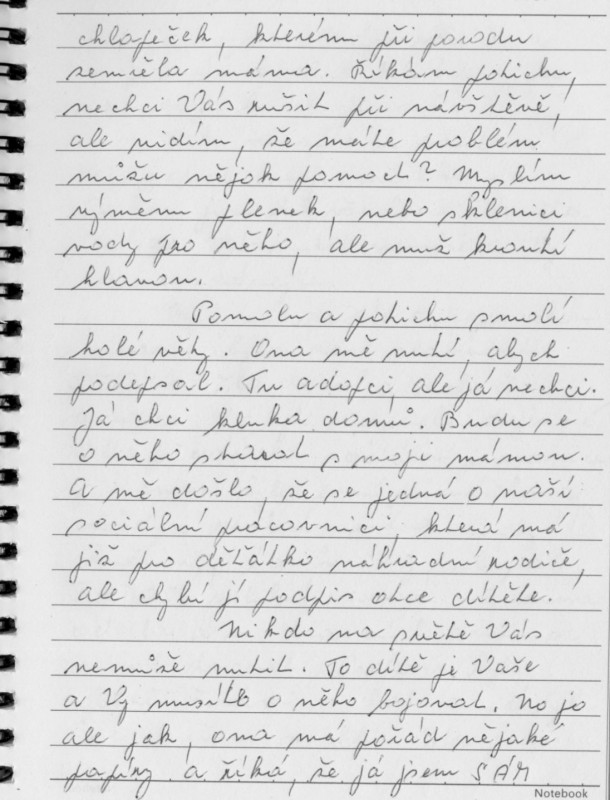 chlapeček, kterému při porodu
zemřela máma. Říkám potichu,
nechci Vás rušit při návštěvě,
ale vidím, že máte problém,
můžu nějak pomoct? Myslím
výměnu plenek, nebo sklenici
vody pro něho, ale muž kroutí
hlavou.
Pomalu a potichu smolí
holé věty. Ona mě nutí, abych
podepsal. Tu adopci, ale já nechci.
Já chci kluka domů. Budu se
o něho starat s mojí mámou.
A mě došlo, že se jedná o naší
sociální pracovnici, která má
již pro děťátko náhradní rodiče,
ale chybí jí podpis otce dítěte.
Nikdo na světě Vás
nemůže nutit. To dítě je Vaše
a Vy musíte o něho bojovat. No jo
ale jak, ona má pořád nějaké
papíry a říká, že já jsem SÁM
Notebook